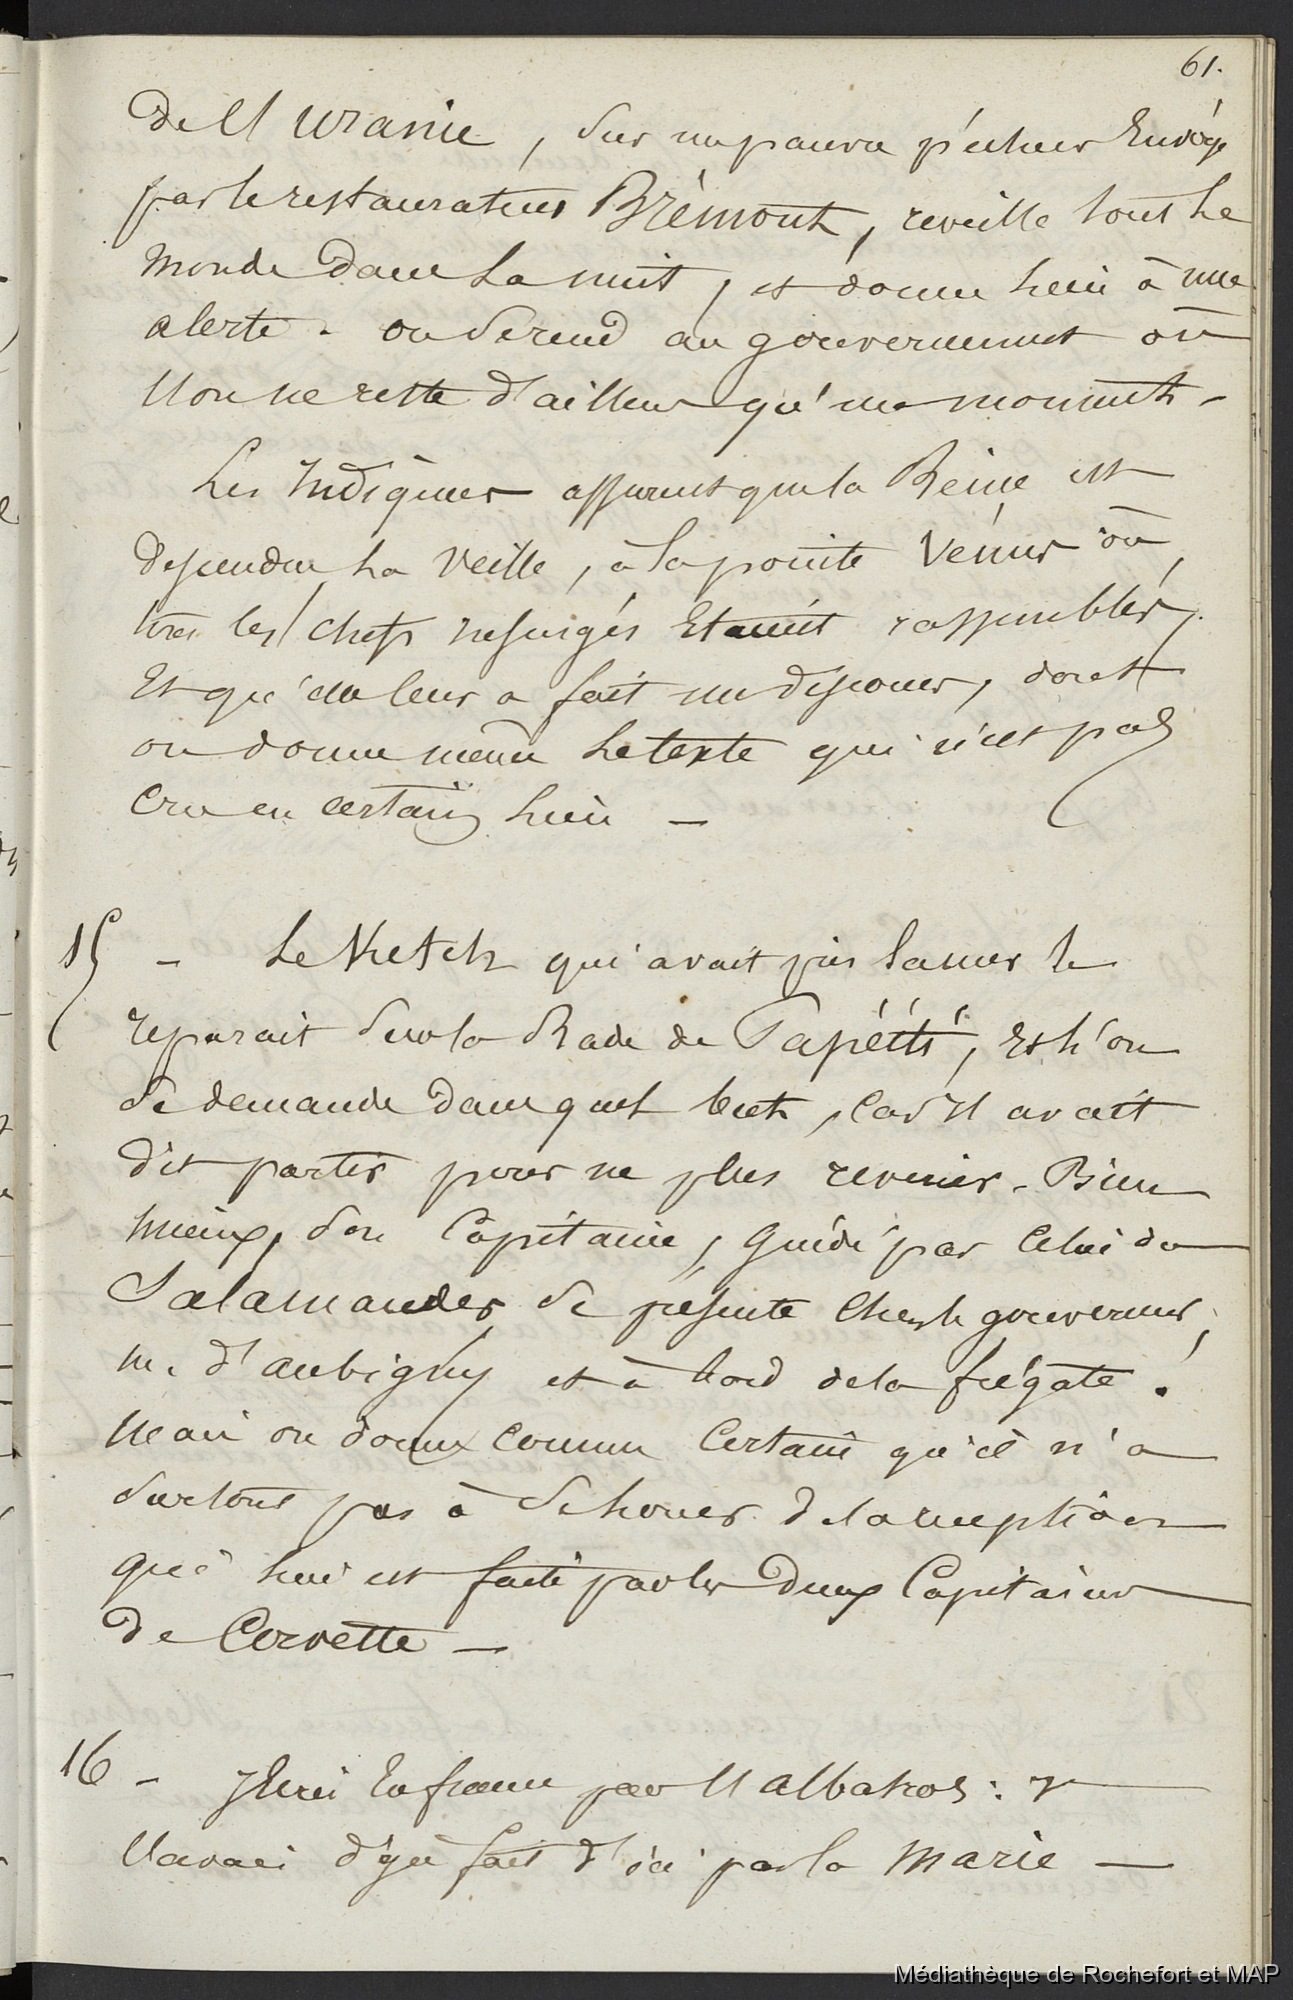 61.
de l'Uranie, sur un pauvre pêcheur
par le restaurateur Brémont, reveille tout le
monde dans la nuit, et donne lieu à une
alerte. on se rend au gouvernement où
l'on ne reste d'ailleurs qu'un moment -
Les Indigènes assurent que la Reine est
descendue la veille, à la pointe Vénus où
tous les chefs insurgés Etaient rassemblés,
Et qu'elle leur a fait un discours, dont
on donne même le texte qui n'est pas
cru en certains lieu -
15 - Le Ketch qui avait pris la mer le
reparait sur la Rade de Papéété, Et l'on
se demande dans quel but, car il avait
dit partir pour ne plus revenir. Bien
mieux, son Capitaine, guidé par celui du
Salamander se présente chez le gouverneur,
m. d'aubigny et à bord de la frégate.
Mais on donne comme certain qu'il n'a
surtout pas à se louer de la reception
qui lui est faite par les deux Capitaines
de Corvette -
16 - J'écris En france par l'albatros : Je
l'avais déjà fait d'ici par la Marie -
Médiathèque de Rochefort et MAP